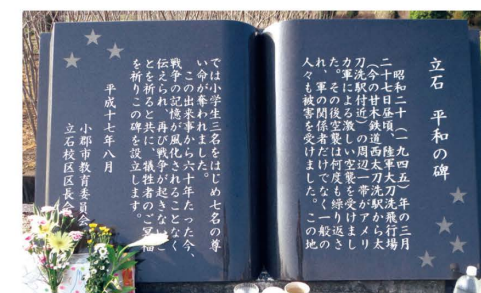 立石 平和の碑
昭和二十（一九四五）年の三月
二十七日昼頃、陸軍大刀洗飛行場
（今の甘木鉄道西太刀洗駅から太
刀洗駅付近）の周辺一帯がアメリ
カ軍による激しい空襲を受けまし
た。その後空襲は何度も繰り返さ
れ、軍の関係者だけでなく一般の
人々も被害を受けました。この地
では小学生三名をはじめ七名の尊
い命が奪われました。
この出来事から六十年たった今、
戦争の記憶が風化されることなく
伝えられ、再び戦争が起きないこ
とを祈ると共に、犠牲者のご冥福
を祈りこの碑を設立します。
平成十七年八月
小郡市教育委員会
立石校区区長会